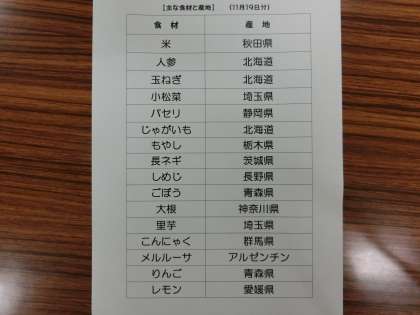 【主な食材と産地】 (11月19日分)
食材 産地
米 秋田県
人参 北海道
玉ねぎ 北海道
小松菜 埼玉県
パセリ 静岡県
じゃがいも 北海道
もやし 栃木県
長ネギ 茨城県
しめじ 長野県
ごぼう 青森県
大根 神奈川県
里芋 埼玉県
こんにゃく 群馬県
メルルーサ アルゼンチン
りんご 青森県
レモン 愛媛県